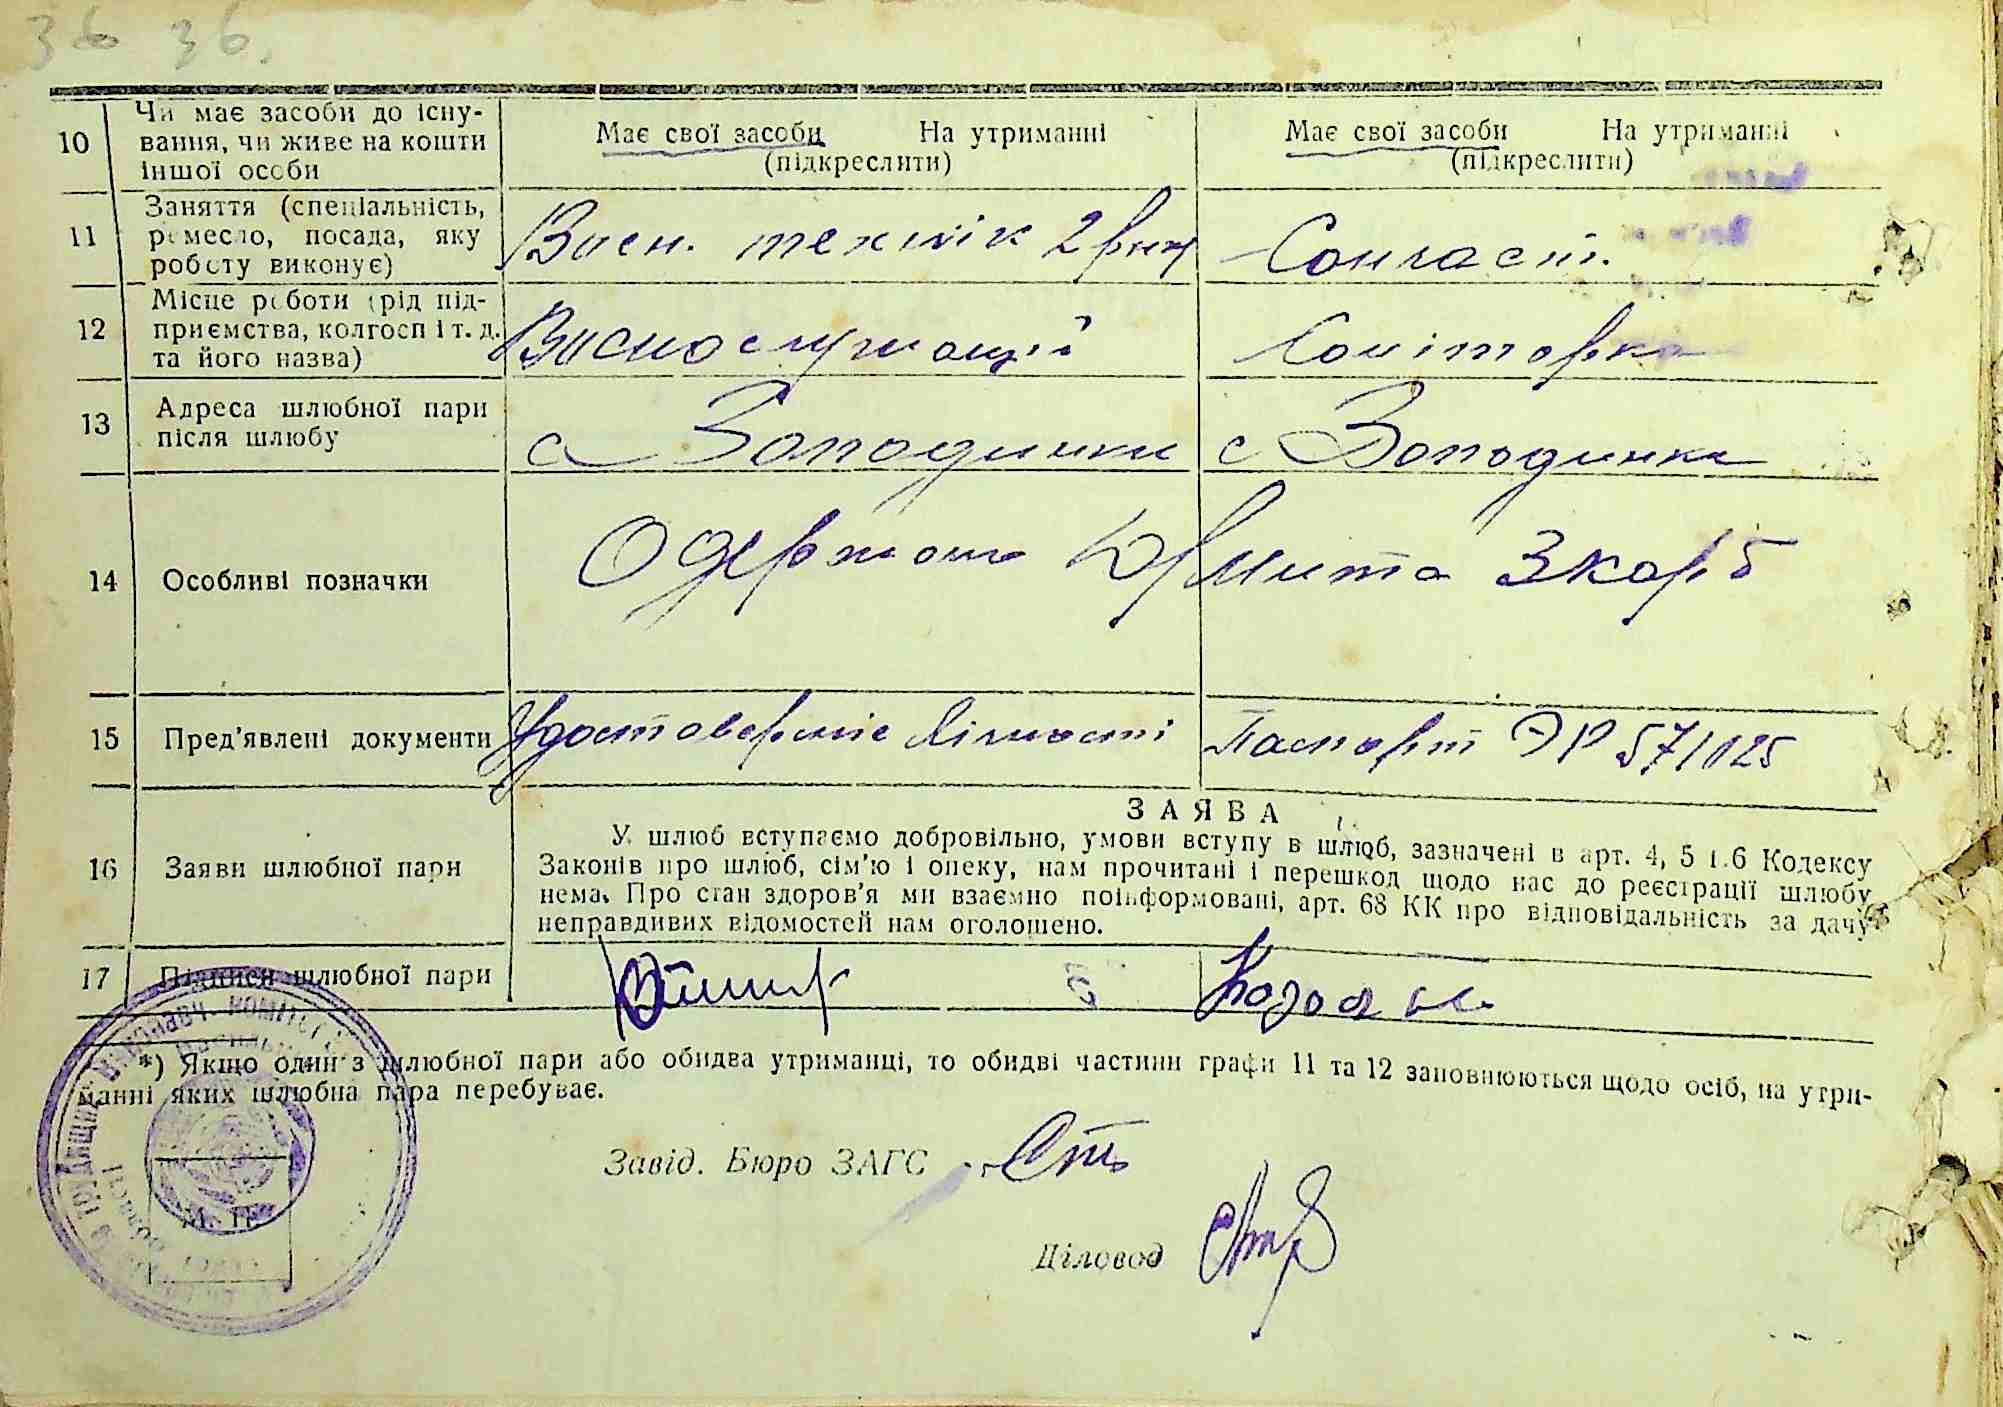 36 36.
10 Чи має засоби до існу-
вання, чи живе на кошти
іншої особи
Має свої засоби На утриманні
(підкреслити)
Має свої засоби На утриманні
(підкреслити)
11 Заняття (спеціальність,
ремесло, посада, яку
роботу виконує)
Воєн. технік 2 ранг
12 Місце роботи (рід під-
приємства, колгосп і т. д.
та його назва)
Воєнослужащий
Санітарка
13 Адреса шлюбної пари
після шлюбу
с Западинка
с Западинка
14 Особливі позначки
15 Пред'явлені документи
Удостовереніе Лічності
Паспорт ЭР 571025
16 Заяви шлюбної пари
ЗАЯВА
У шлюб вступаємо добровільно, умови вступу в шлюб, зазначені в арт. 4, 5 і 6 Кодексу
Законів про шлюб, сім'ю і опеку, нам прочитані і перешкод щодо нас до реєстрації шлюбу
нема. Про стан здоров'я ми взаємно поінформовані, арт. 68 КК про відповідальність за дачу
неправдивих відомостей нам оголошено.
17 Підписи шлюбної пари
*) Якщо один з шлюбної пари або обидва утриманці, то обидві частини графи 11 та 12 заповнюються щодо осіб, на утри-
манні яких шлюбна пара перебуває.
Завід. Бюро ЗАГС
Діловод
М. П.